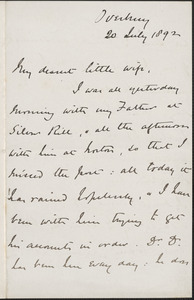 Iverberry
20 July 1892
My dearest little wife,
I was all yesterday
morning with my Father at
Silver Rill, & all the afternoon
with him at Norton, so that I
missed the post - all today it
has rained hopelessly, & I have
been with him trying to get
his accounts in order. Dr. D.
has been here every day - he does